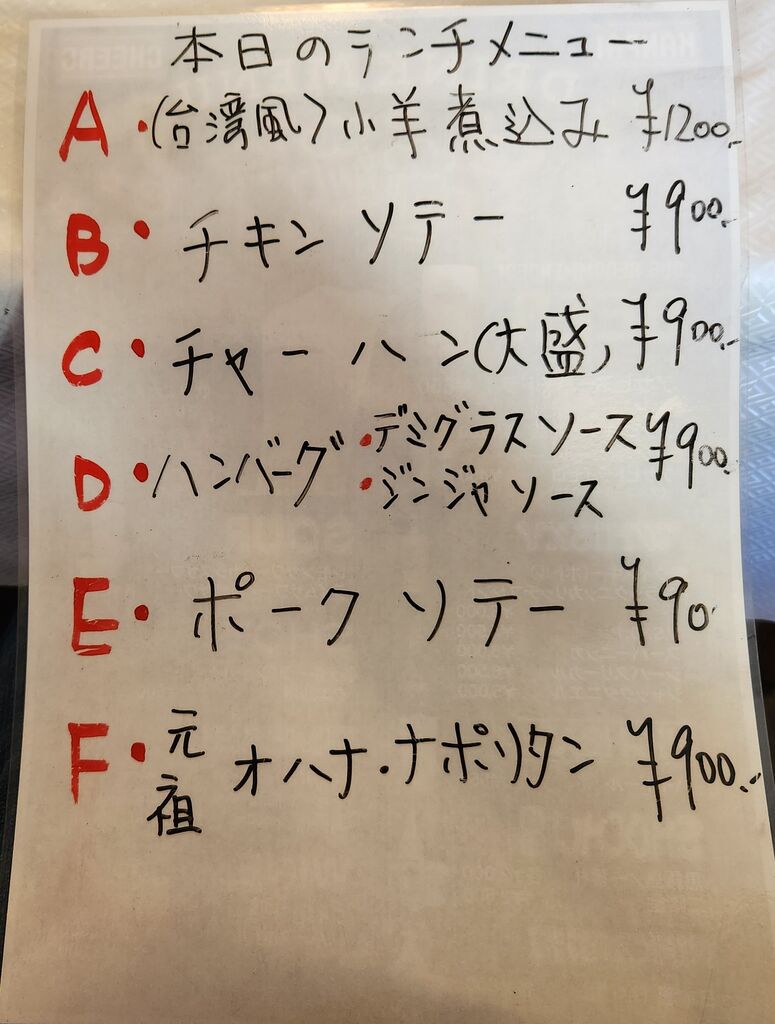 本日のランチメニュー
A・(台湾風)小羊煮込み ¥1200.-
B・チキンソテー ¥900.-
C・チャーハン(大盛) ¥900.-
D・ハンバーグ・デミグラスソース ¥900.
・ジンジャソース
E・ポークソテー ¥90
F・元祖 オハナ・ナポリタン ¥900.-